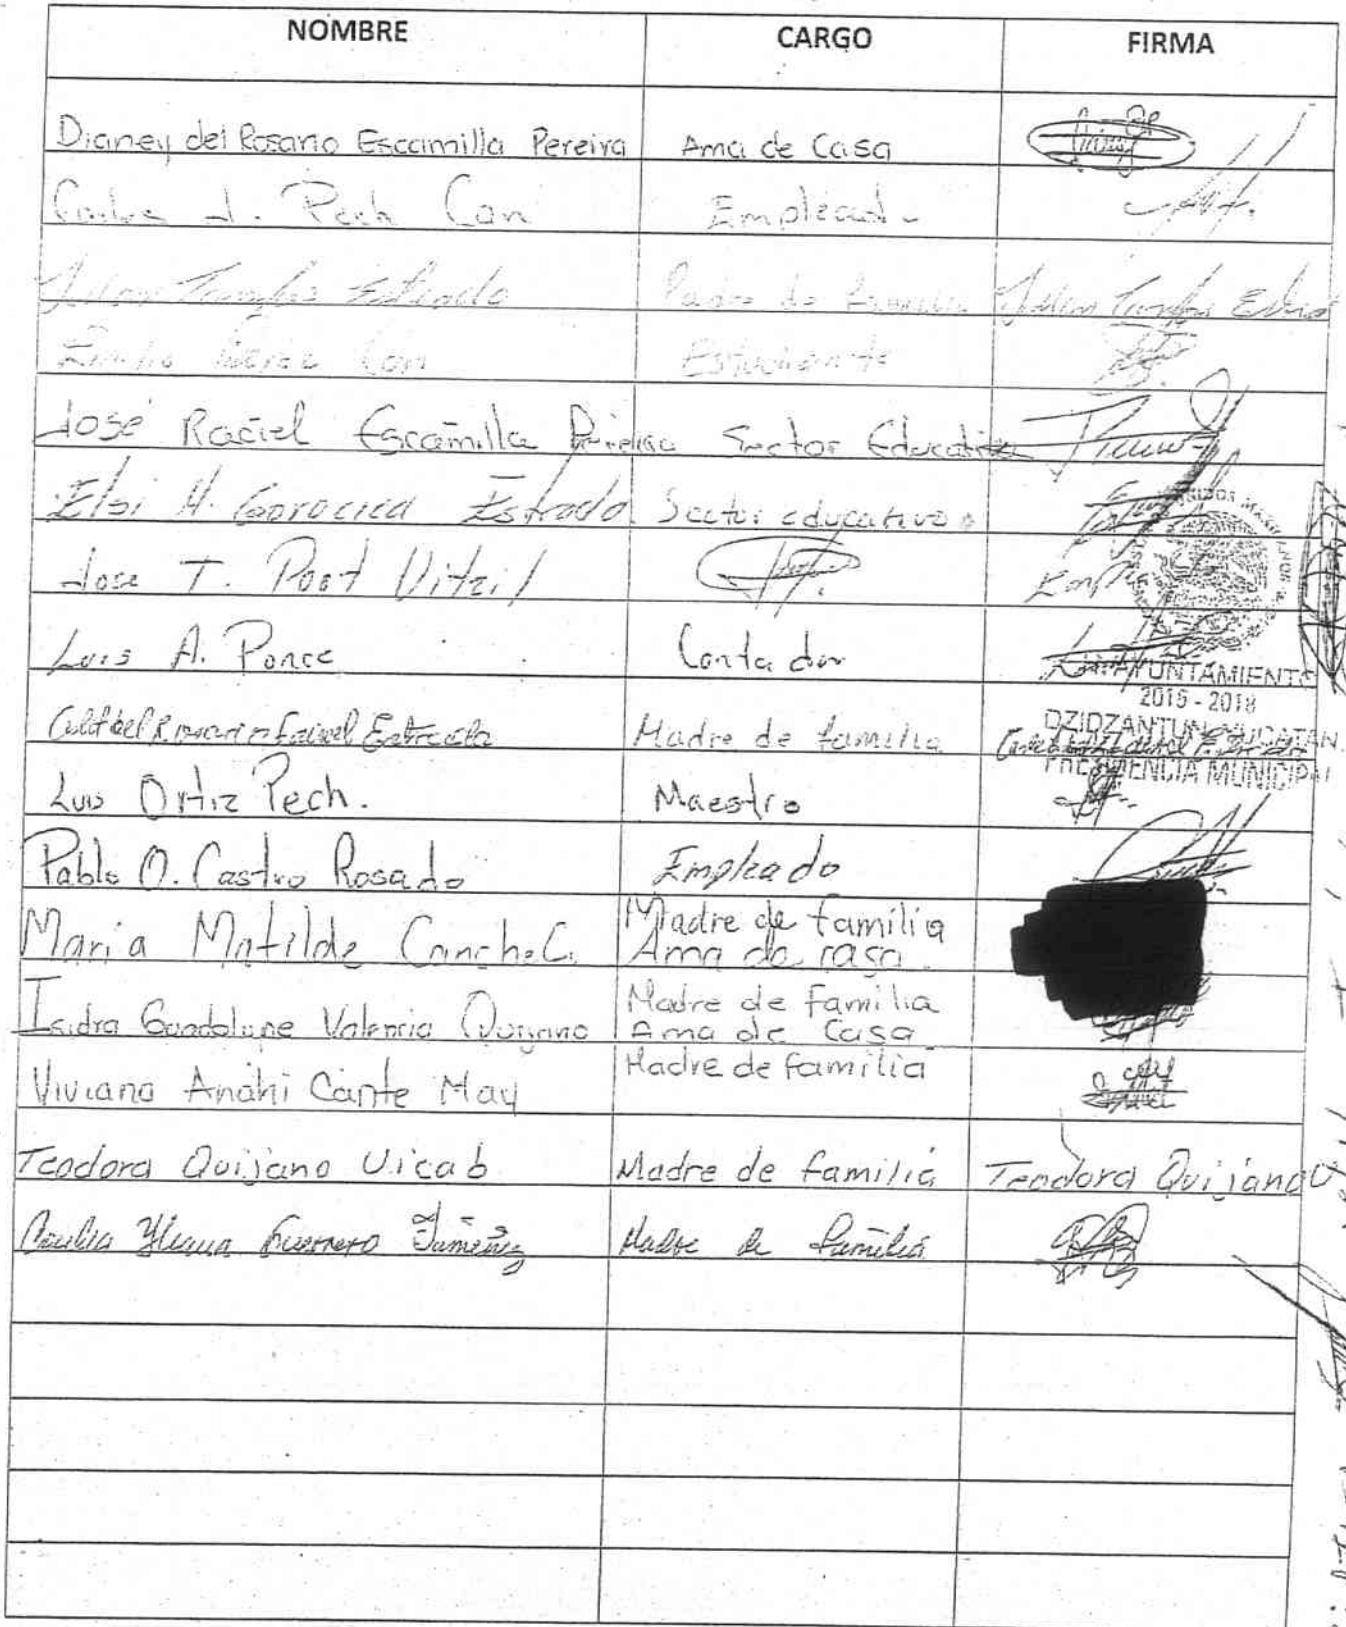 NOMBRE CARGO FIRMA
Dianey del Rosario Escamilla Pereira Ama de Casa
Carlos J. Pech Can Empleado
Estrada Padre de familia
Can Estudiante
José Raciel Escamilla Pereira Sector Educativo
Elsi H. Gorocica Estrada Sector educativo
Jose T. Poot Uitzil
Luis A. Ponce Contador
H. AYUNTAMIENTO
2015 - 2018
DZIDZANTUN YUCATAN
PRESIDENCIA MUNICIPAL
Madre de familia
Luis Ortiz Pech. Maestro
Pablo O. Castro Rosado Empleado
Maria Matilde Canche C. Madre de familia
Ama de casa
Isidra Guadalupe Valencia Quijano Madre de familia
Ama de Casa
Viviana Anahi Cante May Madre de familia
Teodora Quijano Uicab Madre de familia Teodora Quijano U
Guerrero Jimenez Madre de familia